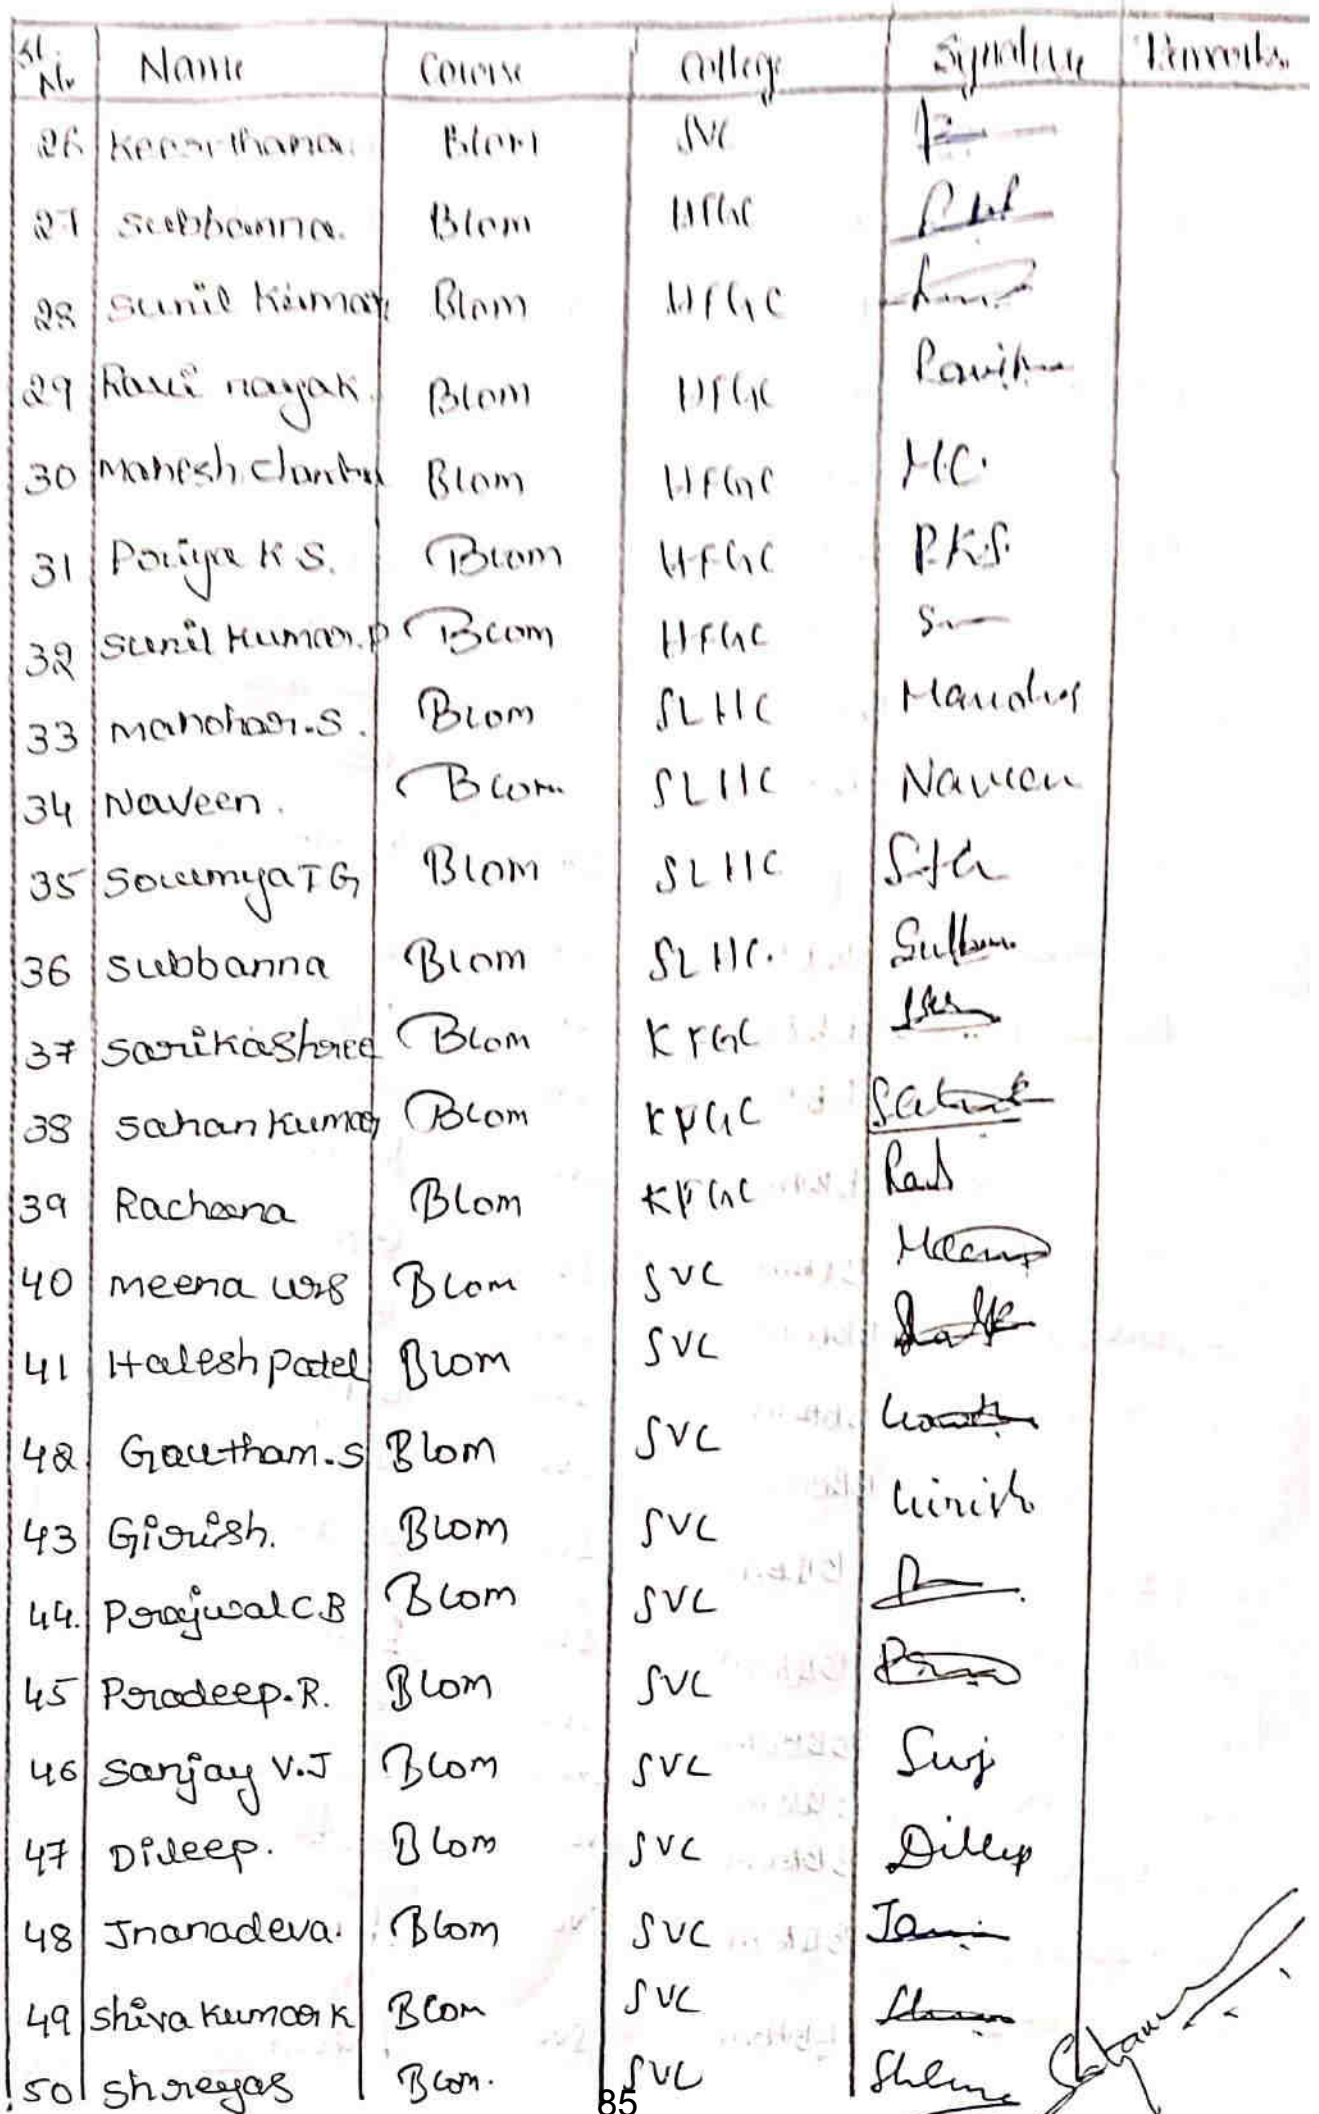 Sl. No Name Course College Signature Remarks
26 Keerthana. Bcom SVC
27 Subbanna. Bcom HFGC
28 Sunil Kumar. Bcom HFGC
29 Ravi nayak. Bcom HFGC
30 Mahesh Bcom HFGC M.C.
31 Poriya K S. Bcom HFGC P.K.S.
32 Sunil Kumar.P Bcom HFGC
33 Manohar.S. Bcom SLHC
34 Naveen. Bcom. SLHC Naveen
35 Soumya T G Bcom SLHC
36 Subbanna Bcom SLHC.
37 SarikaShree Bcom KFGC
38 Sahan Kumar Bcom KFGC
39 Rachana Bcom KFGC
40 meena urs Bcom SVC Meena
41 Halesh patel Bcom SVC
42 Gautham.S Bcom SVC
43 Girish. Bcom SVC Girish
44. Prajwal C B Bcom SVC
45 Pradeep.R. Bcom SVC
46 Sanjay V.J Bcom SVC
47 Dileep. Bcom SVC Dileep
48 Jnanadeva. Bcom SVC
49 Shiva Kumar K Bcom SVC
50 Shreyas Bcom. SVC
85